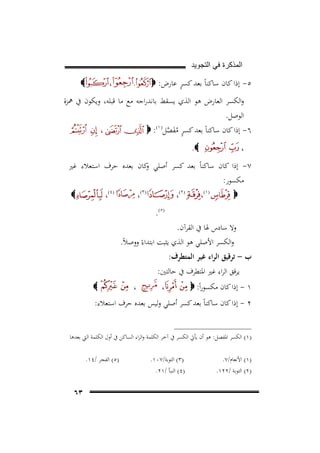 المذكرة في التجويد
٥- إذا كان ساكناً بعد كسر عارض: ﴿ٱرۡكَعُواْ، ٱرۡجِعُوٓاْ، ٱرۡكَبُواْ﴾
والكسر العارض هو الذي يسقط باندراجه مع ما قبله، ويكون في همزة
الوصل.
٦- إذا كان ساكناً بعد كسر مُنفصِل(١): ﴿ٱلَّذِي ٱرۡتَضَىٰ، إِنِ ٱرۡتَبۡتُمۡ
، رَبِّ ٱرۡجِعُونِ﴾.
٧- إذا كان ساكناً بعد كسر أصلي وكان بعده حرف استعلاء غير
مكسور:
﴿قِرۡطَاسٖ(١)، فِرۡقَةٖ(٢)، وَإِرۡصَادٗا(٣)، مِرۡصَادٗا(٤)، لَبِٱلۡمِرۡصَادِ﴾
(٥).
ولا سادس لها في القرآن.
والكسر الأصلي هو الذي يثبت ابتداءً ووصلاً.
ب – ترقيق الراء غير المتطرف:
يرقق الراء غير المتطرف في حالتين:
١ – إذا كان مكسوراً: ﴿مِنۡ أَمۡرِنَا، مَّرِيجٍ ، مِنۡ غَيۡرِكُمۡ﴾
٢ – إذا كان ساكناً بعد كسر أصلي وليس بعده حرف استعلاء:
(١) الكسر المنفصل: هو أن يأتي الكسر في آخر الكلمة والراء الساكن في أول الكلمة التي بعدها
(١) الأنعام/٧. (٣) التوبة/١٠٧. (٥) الفجر /١٤.
(٢) التوبة /١٢٢. (٤) النبأ /٢١.
٦٣